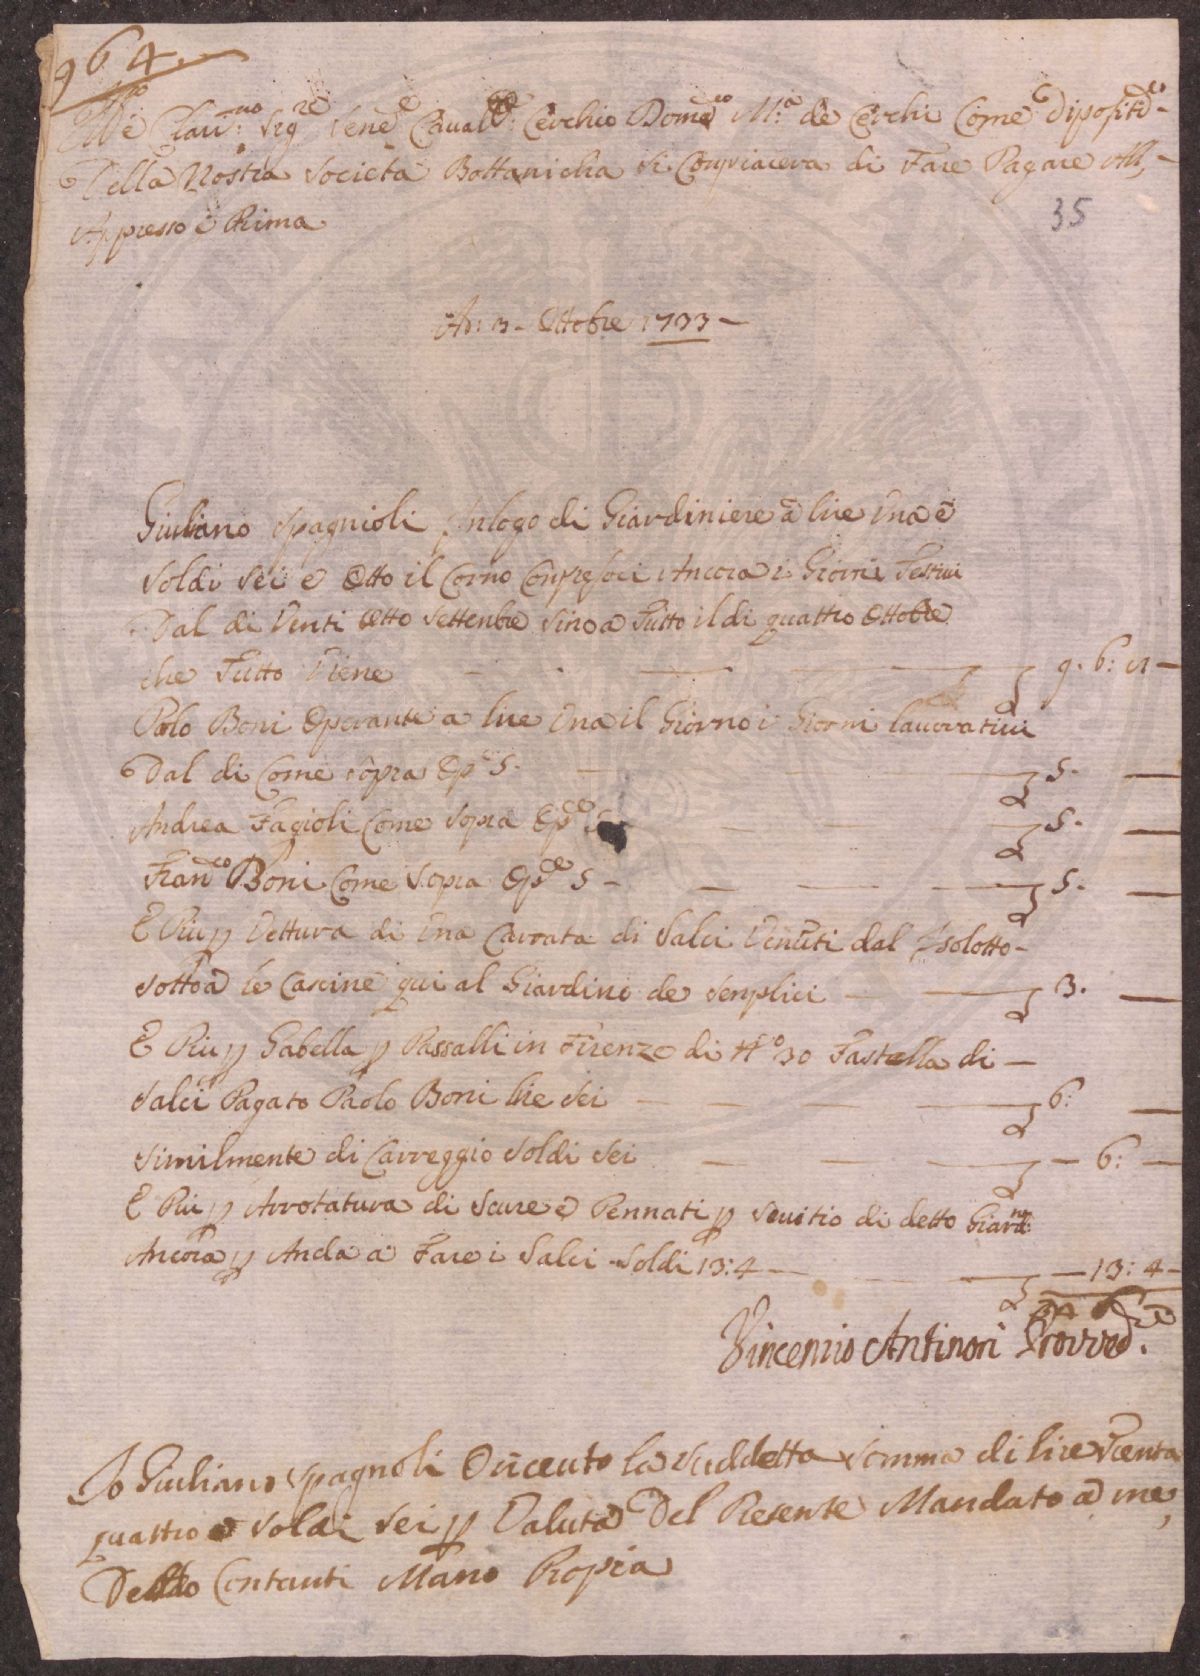 964.
Ill.mo e Clar.mo Sig.re Sene.e Caval.re Cerchio Dome.co M.a de Cerchi Come Diposit.co
Della Nostra Societa Bottanicha Si Conpiacera di Fare Pagare All
Appresso e Prima
35
Ad: 3 - Ottobre 1733 -
Giuliano Spagnioli Inlogo di Giardiniere a lire Una e
Soldi Sei e Otto il Corno Conpresoci Ancora i Giorni Festiui
Dal di Venti Otto Settenbre Sino a Tutto il di quattro Ottobre
che Tutto Viene 9. 6:
Polo Boni Operante a lire Una il Giorno i Giorni lauoratiui
Dal di Come Sopra Op.e 5. 5. —
Andrea Fagioli Come Sopra Op.e 5 5. —
Fran.co Boni Come Sopra Op.e 5 - 5. —
E Piu p Vettura di Una Carrata di Salci Venuti dal Isolotto -
Sotto a le Cascine qui al Giardino de Senplici 3. —
E Piu p Gabella p Passalli in Firenze di N.o 30 Fastella di —
Salci Pagato Paolo Boni lire Sei 6: —
Similmente di Carreggio Soldi Sei — 6: —
E Piu p Arrotatura di Scure e Pennati p Seruitio di detto Giard.no
Ancora p Anda a Fare i Salci - Soldi 13:4 — 13:4 -
34 6
Vincenzio Antinori Provved.re
Io Giuliano Spagnoli O riceuto la Suddetta Somma di lire Trenta
quattro e Soldi Sei p Valuta Del Presente Mandato a me
Detto Contanti Mano Propia